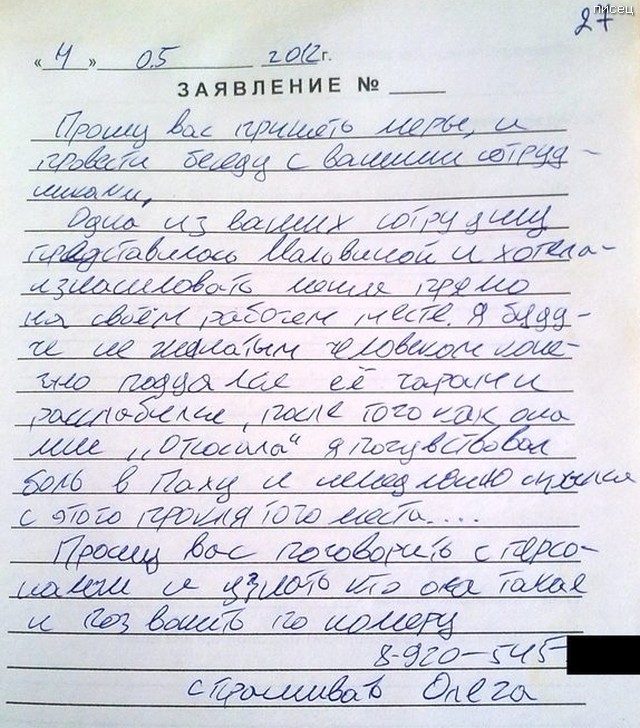 писец
27
« 4 » 05 2012г.
ЗАЯВЛЕНИЕ № ____
Прошу вас принять меры, и
провести беседу с вашими сотруд-
никами,
Одна из ваших сотрудниц
представилась Мальвиной и хотела
изнасиловать меня прямо
на своём рабочем месте. Я буду-
чи не женатым человеком коне-
чно поддался её чарам и
расслабился, после того как она
мне „Откосала“ я почувствовал
боль в паху и немедленно
с этого проклятого места....
Прошу вас поговорить с персо-
налом и узнать кто она такая
и позвонить по номеру
8-920-545
спрашивать Олега